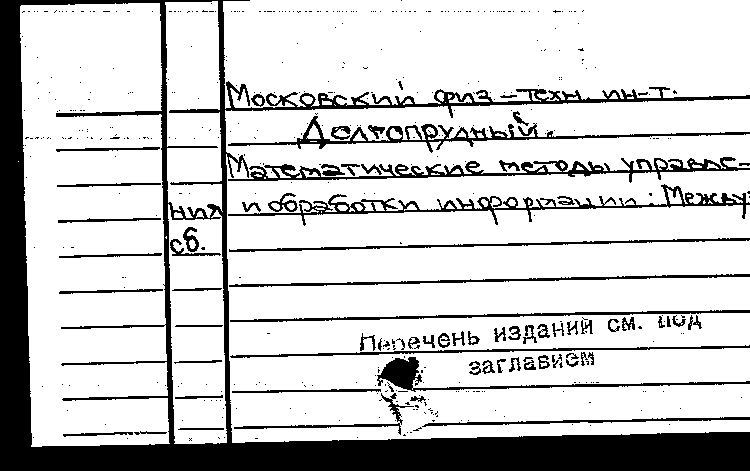 Московский физ-техн. ин-т.
Долгопрудный.
Математические методы управле-
ния и обработки информации: Межву
сб.
Перечень изданий см. под
заглавием